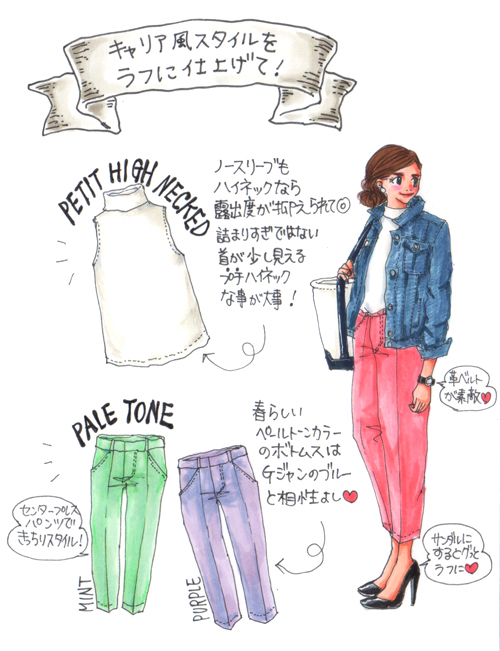 キャリア風スタイルを
ラフに仕上げて!
PETIT HIGH NECKED
ノースリーブも
ハイネックなら
露出度が抑えられて◎
詰まりすぎではない
首が少し見える
プチハイネック
な事が大事!
革ベルト
が素敵♥
PALE TONE
春らしい
ペールトーンカラー
のボトムスは
Gジャンのブルー
と相性よし♥
センタープレス
パンツで
きっちりスタイル!
MINT
PURPLE
サンダルに
するとグッと
ラフに♥